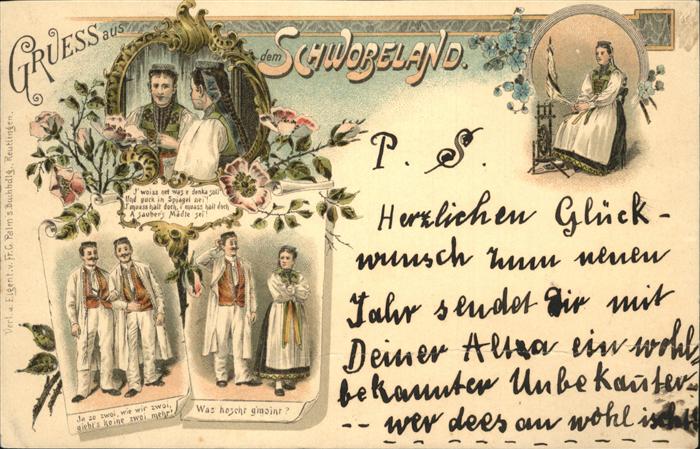 GRUESS aus dem SCHWOBELAND.
J' woiss net was e denka soll
Und guck in Spiagel nei!
I muass halt doch, i muass halt doch
A saubers Mädle sei!
Ja so zwoi, wie wir zwoi,
giebt's koine zwoi mehr!
Was hoscht gmoint?
Verl. u. Eigent. v. Fr. C. Palm's Buchhdlg., Reutlingen.
P. S.
Herzlichen Glück-
wunsch zum neuen
Jahr sendet Dir mit
Deiner ein wohl
bekannter Unbekannter
-- wer dees au wohl ischt